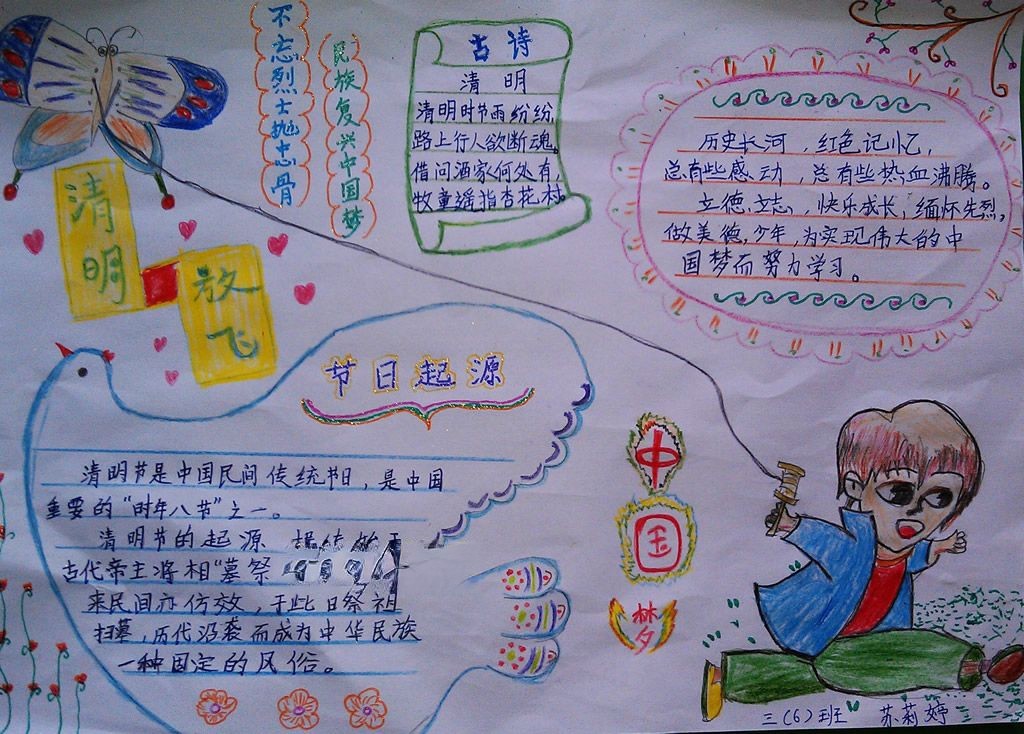 不忘烈士抛忠骨
民族复兴中国梦
古诗
清明
清明时节雨纷纷,
路上行人欲断魂。
借问酒家何处有,
牧童遥指杏花村。
历史长河,红色记忆,
总有些感动,总有些热血沸腾。
立德立志,快乐成长,缅怀先烈,
做美德少年,为实现伟大的中
国梦而努力学习。
清明
放飞
节日起源
清明节是中国民间传统节日,是中国
重要的“时年八节”之一。
清明节的起源
古代帝主将相“墓祭
来民间亦仿效,于此日祭祖
扫墓,历代沿袭而成为中华民族
一种固定的风俗。
中
国
梦
三(6)班 苏莉婷